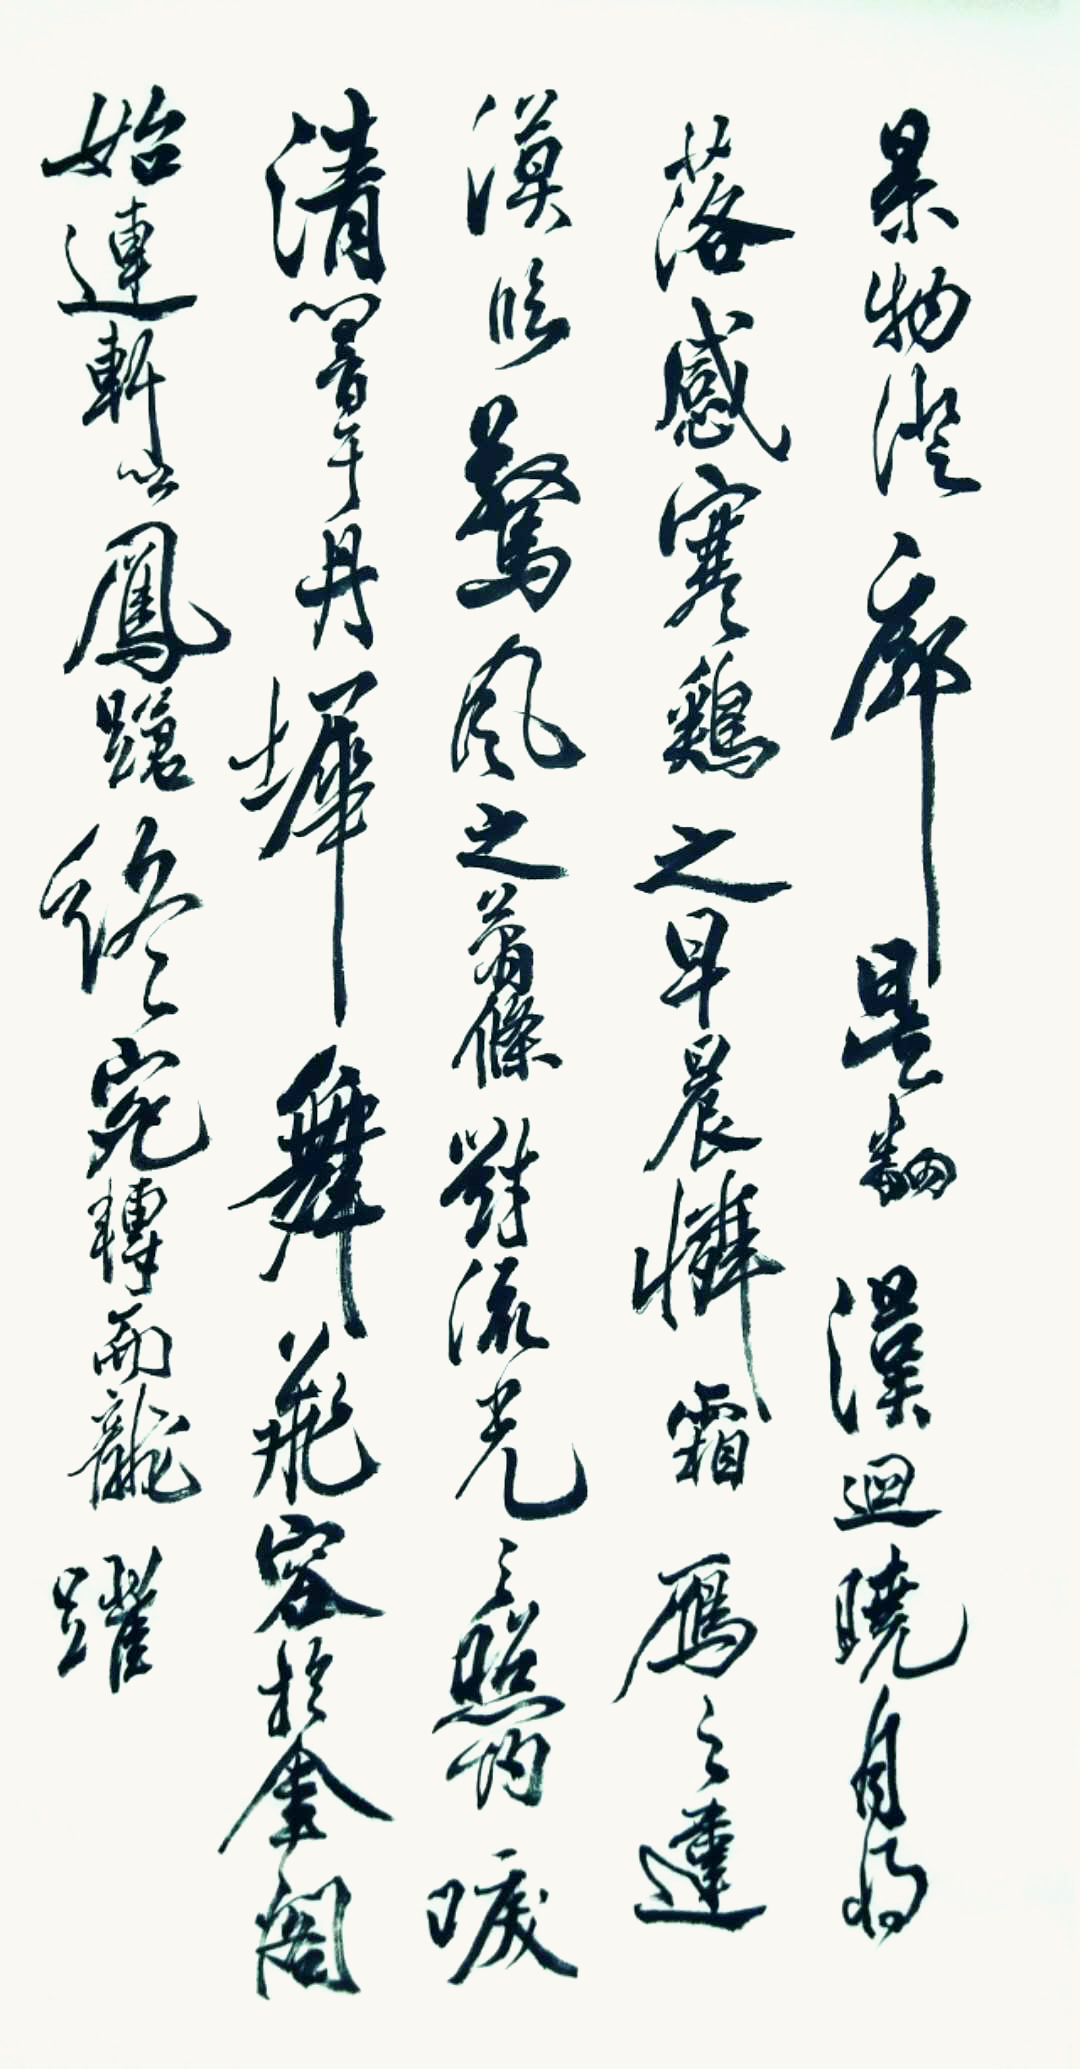 景物澄廓星翻漢迴曉月将
落感寒鷄之早晨憐霜鴈之違
漠臨驚風之蕭條對流光之照灼唳
清響于丹墀舞飛容於金閣
始連軒以鳳蹌終宛轉而龍躍